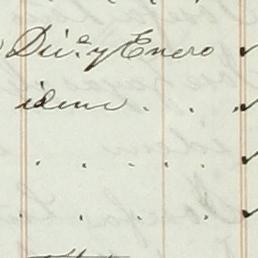 Dic.e y Enero
idem . . .
. . . . .
. . . . .